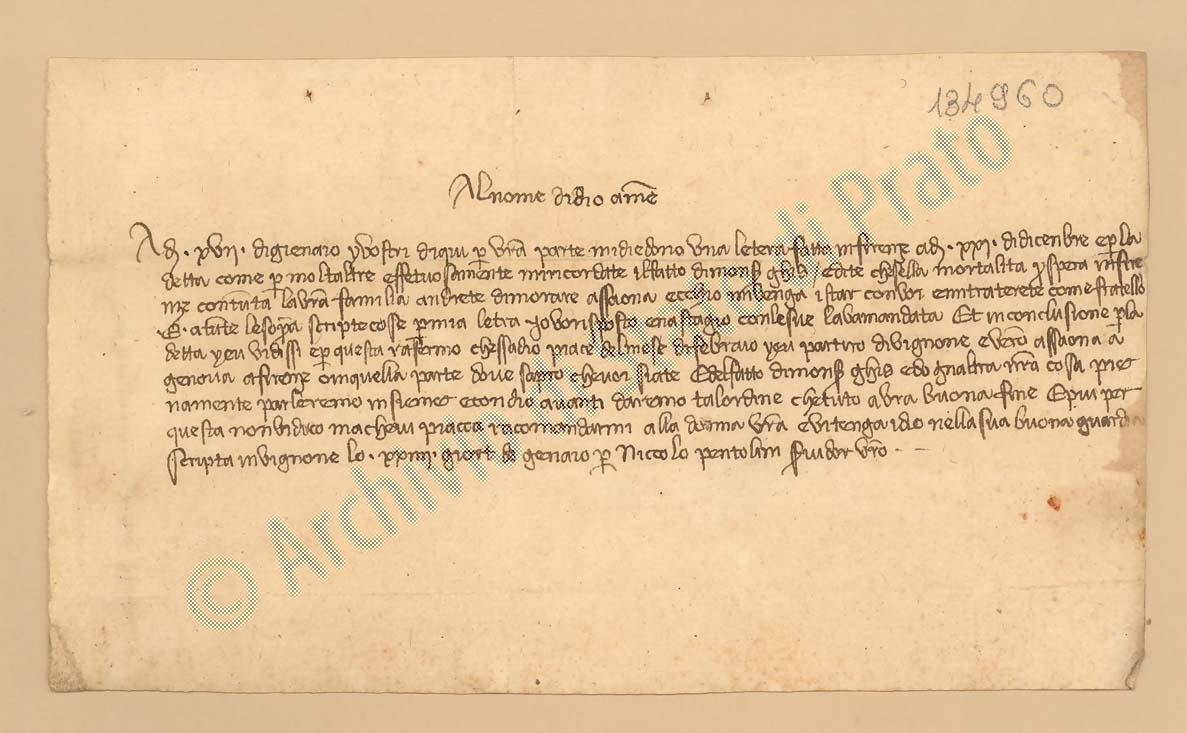 134960
Al nome didio amē
Ad. xvii. digienaio y vostri diqui p vrā parte midiedono una letera fatta infirenze ad. xxi. didicenbre e p la
detta come p moltaltre effetuosamente miricordate ilfatto dimons ghis / edite chesella mortalita y spera infire
nze contuta la vrā familia andrete dimorare assaona ecchio mivenga istar convoi emitraterete come fratello
E. atute lesopra scriptecosse p mia letra jovorisposto enastagio conlesue lavamandata Et inconclusione p la
detta yeu vidissi e p questa rafermo chessadio piace delmese defebraio yeu partiro divignone everro assaona a
genova afirenze oinquella parte dove sapro chevoi siate Edelfatto dimons ghis edognaltra vrā cosa pie
namente parleremo insieme econdio avanti daremo talordine chetuto avra buona fine E piu per
questa nonvidico ma chevi piaccia racomandarmi alla donna vrā evitenga idio nella sua buona guardia
scripta invignone lo. xxiiii. giort de genaro p Niccolo pentolini s'vidor vro.
© Archivio di Stato di Prato